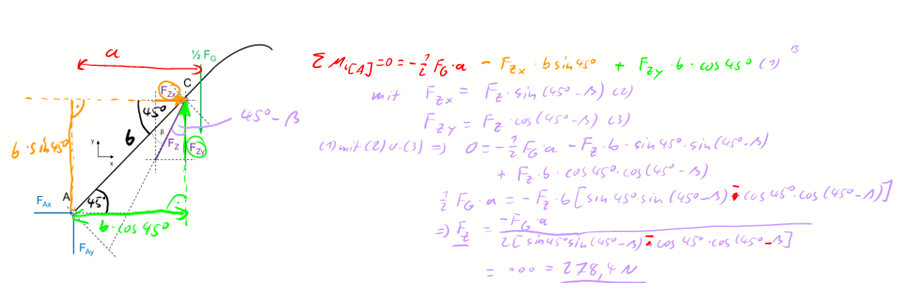 a
½ FG
C
FZx
45°
45°-β
b
β
FZ
FZy
b·sin45°
y
x
A
FAx
45°
b·cos45°
FAy
ΣMi[A]=0=-½FG·a - FZx·b sin45° + FZy·b·cos45° (1)
mit FZx = FZ·sin(45°-β) (2)
FZy = FZ·cos(45°-β) (3)
(1) mit (2) u. (3) => 0=-½FG·a -FZ·b·sin45°·sin(45°-β)
+ FZ·b·cos45°·cos(45°-β)
½FG·a = -FZ·b[sin45°sin(45°-β)-cos45°·cos(45°-β)]
=> FZ = -FG·a / 2[sin45°sin(45°-β)-cos45°·cos(45°-β)]
= ... = 278,4 N